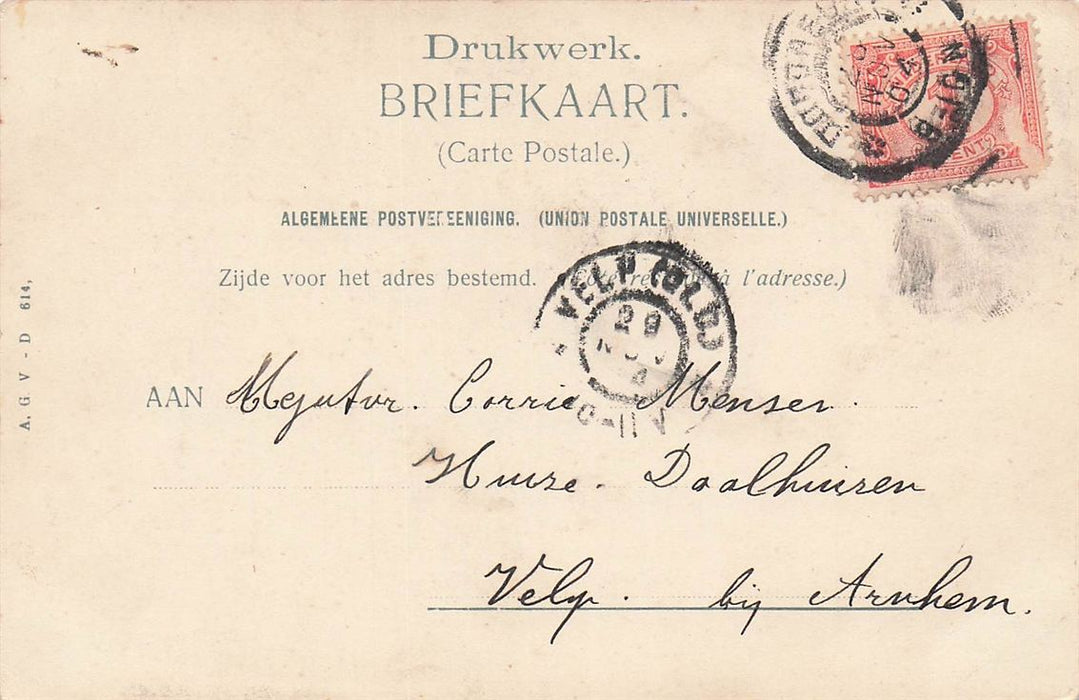 Drukwerk.
BRIEFKAART.
(Carte Postale.)
ALGEMEENE POSTVEREENIGING. (UNION POSTALE UNIVERSELLE.)
Zijde voor het adres bestemd. à l'adresse.)
VELP (GLD.)
29
NOV
4
AAN Mejufvr. Corrie Menser.
Huize. Daalhuizen
Velp. bij Arnhem.
A. G. V - D 614,
CENT